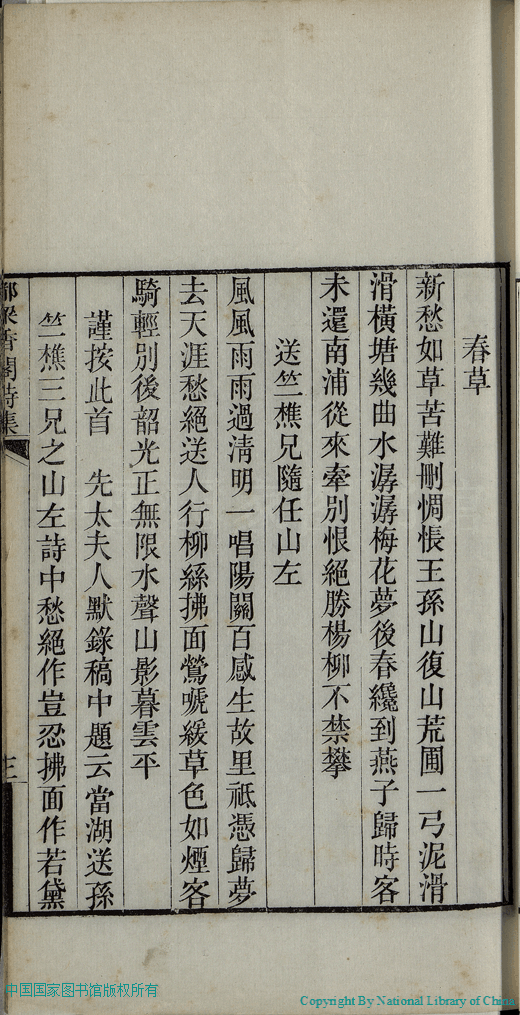 春草
新愁如草苦難刪惆悵王孫山復山荒圃一弓泥滑
滑橫塘幾曲水潺潺梅花夢後春纔到燕子歸時客
未還南浦從來牽別恨絕勝楊柳不禁攀
送竺樵兄隨任山左
風風雨雨過清明一唱陽關百感生故里祗憑歸夢
去天涯愁絕送人行柳絲拂面鶯嗁緩草色如煙客
騎輕別後韶光正無限水聲山影暮雲平
謹按此首 先太夫人默錄稿中題云當湖送孫
竺樵三兄之山左詩中愁絕作豈忍拂面作若黛
香閣詩集
三
中国国家图书馆版权所有
Copyright By National Library of China